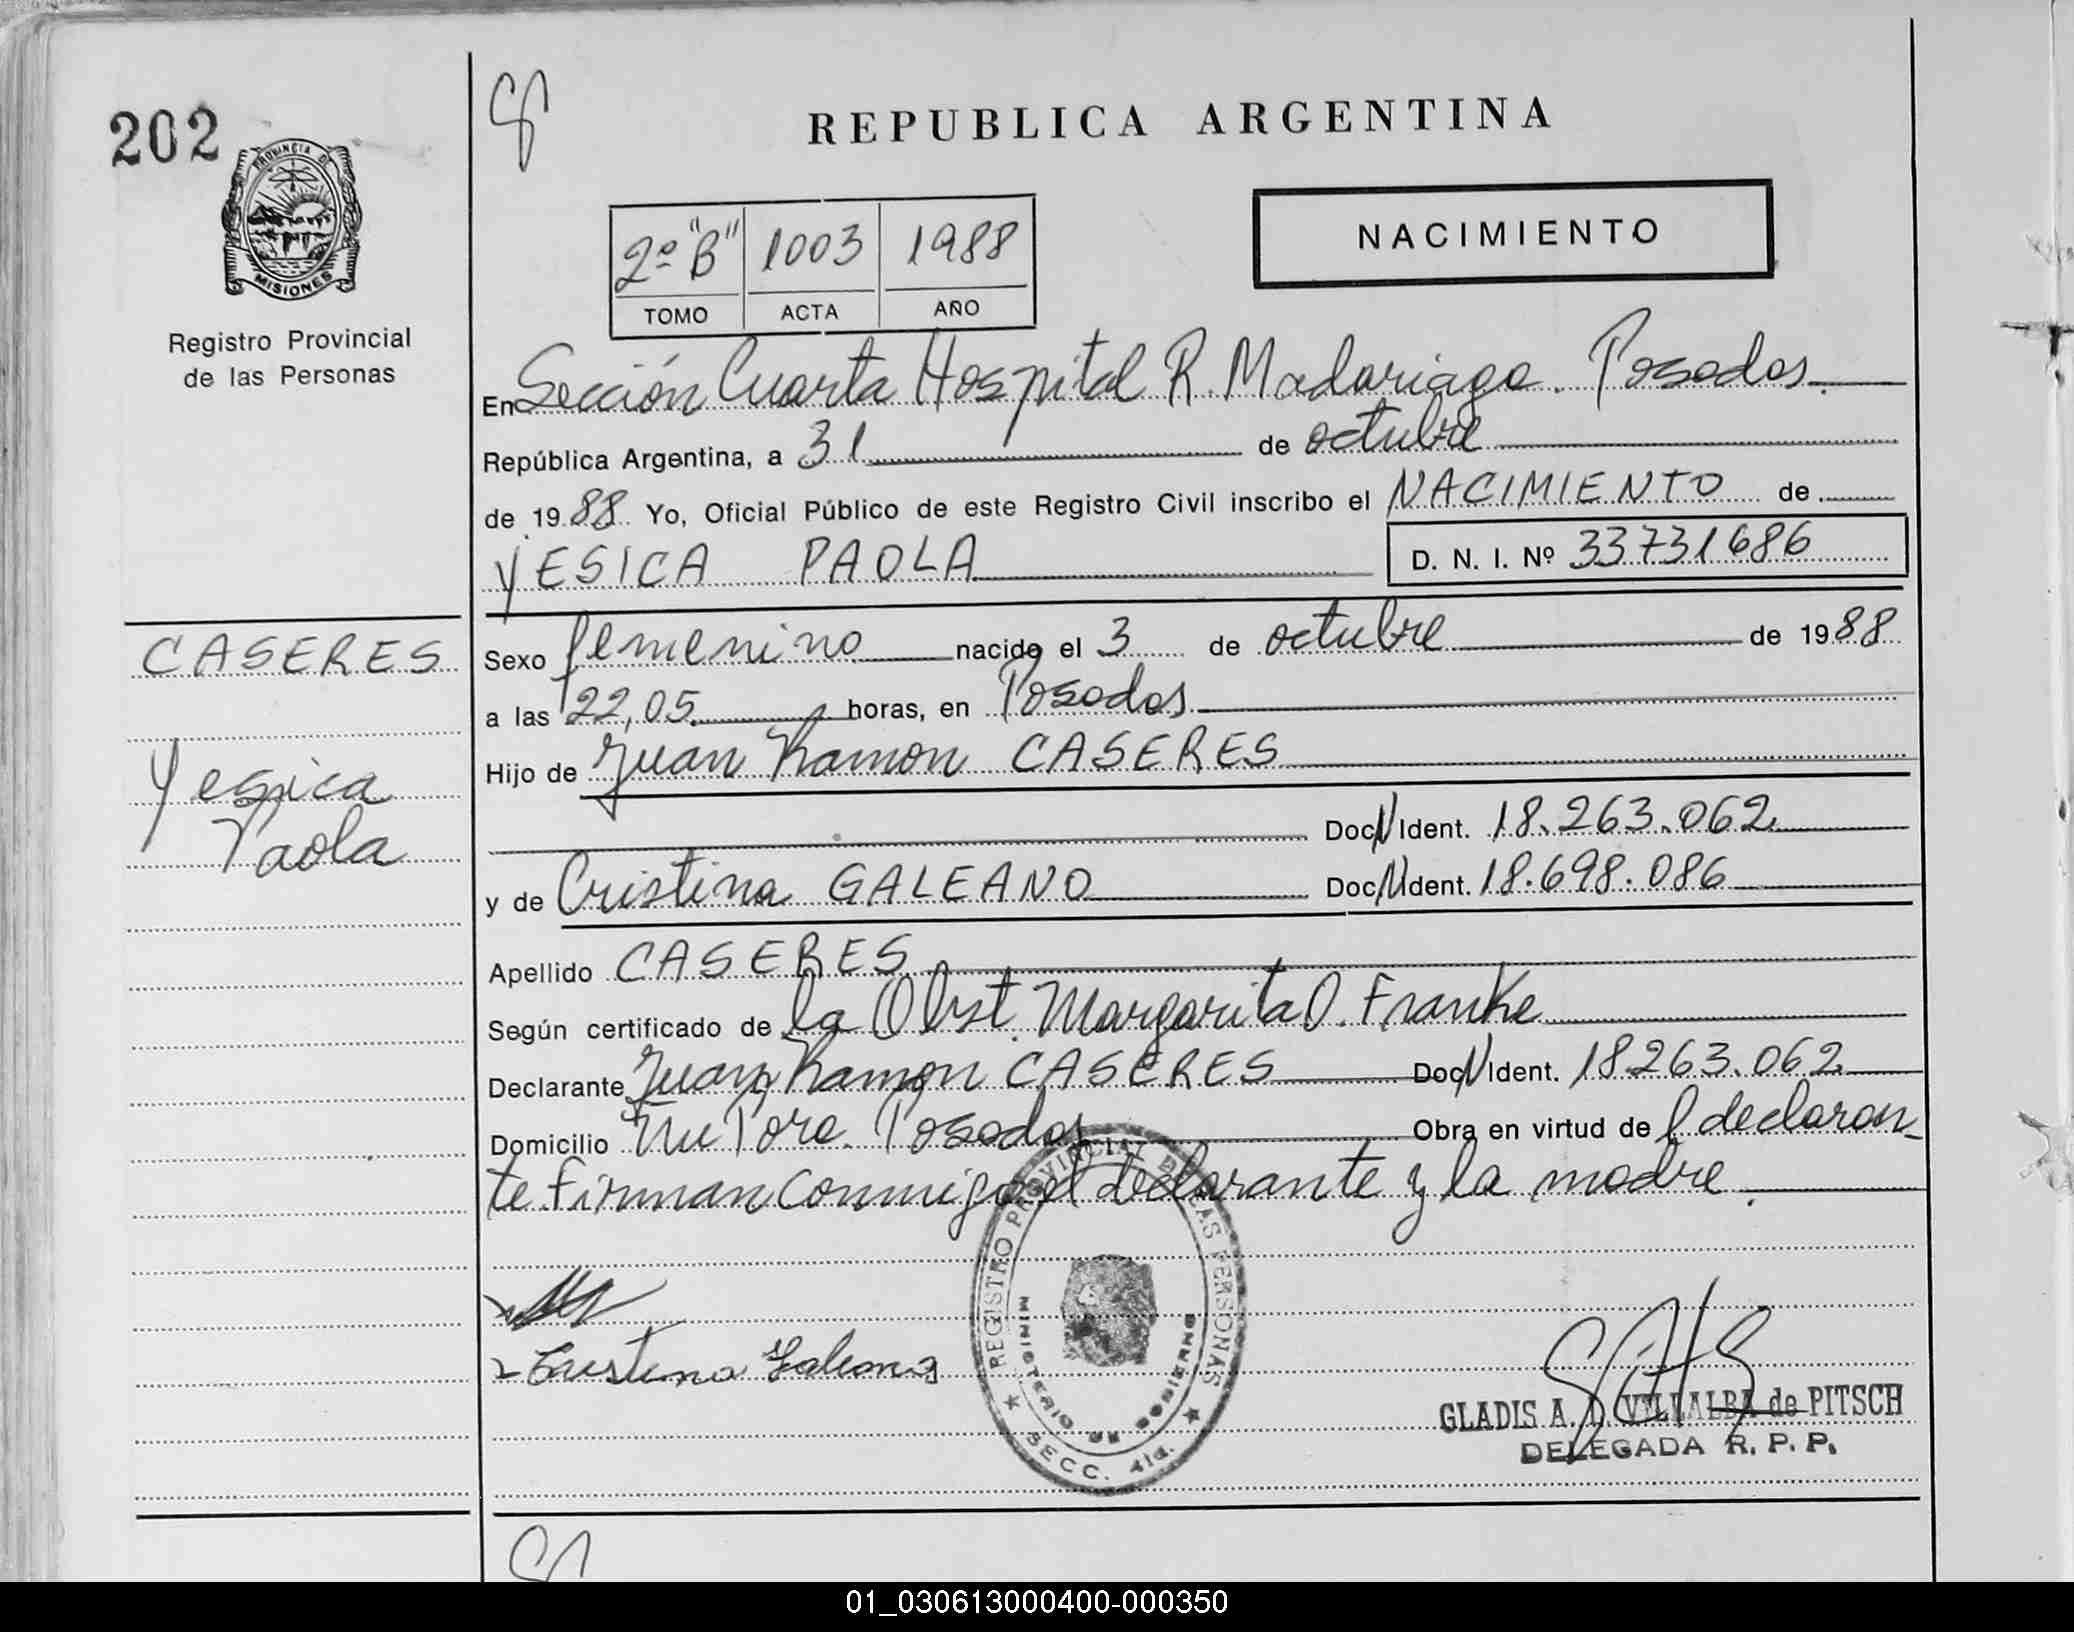 202
PROVINCIA DE
MISIONES
Registro Provincial
de las Personas
REPUBLICA ARGENTINA
NACIMIENTO
2º "B" 1003 1988
TOMO ACTA AÑO
En Sección Cuarta Hospital R. Madariaga. Posadas.
República Argentina, a 31 de octubre
de 1988 Yo, Oficial Público de este Registro Civil inscribo el NACIMIENTO de
YESICA PAOLA D. N. I. Nº 33731686
CASERES
Yesica
Paola
Sexo femenino nacido el 3 de octubre de 1988
a las 22,05 horas, en Posadas
Hijo de Juan Ramon CASERES
Doc N Ident. 18.263.062
y de Cristina GALEANO Doc N Ident. 18.698.086
Apellido CASERES
Según certificado de la Obst. Margarita O. Franke
Declarante Juan Ramon CASERES Doc N Ident. 18263.062
Domicilio Posadas Obra en virtud de l declaran
te firman conmigo el declarante y la madre.
Cristina Galeano
REGISTRO PROVINCIAL DE LAS PERSONAS
MINISTERIO DE GOBIERNO
SECC. 4ta.
GLADIS A. VILLALBA de PITSCH
DELEGADA R. P. P.
01_030613000400-000350